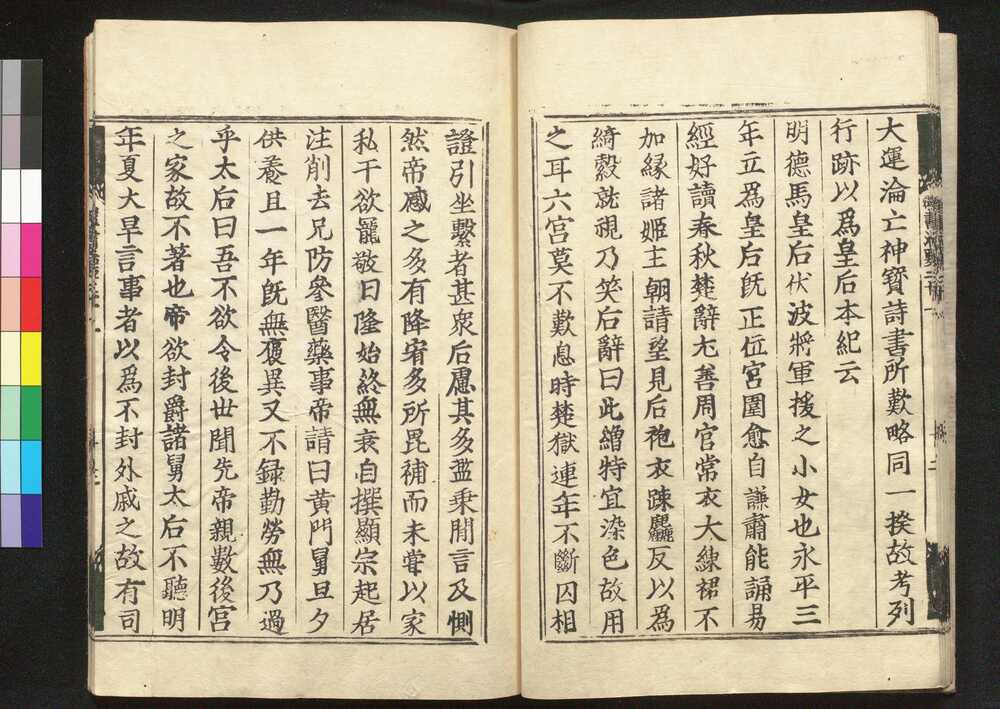 大運淪亡神寶詩書所歎略同一揆故考列
行跡以爲皇后本紀云
明德馬皇后伏波將軍援之小女也永平三
年立爲皇后旣正位宮闈愈自謙肅能誦易
經好讀春秋楚辭尤善周官常衣大練裙不
加緣諸姬主朝請望見后袍衣踈麤反以爲
綺縠就視乃笑后辭曰此繒特宜染色故用
之耳六宮莫不歎息時楚獄連年不斷囚相
證引坐繫者甚衆后慮其多濫乘閒言及惻
然帝感之多有降宥多所毘補而未甞以家
私干欲寵敬日隆始終無衰自撰顯宗起居
注削去兄防參醫藥事帝請曰黃門舅旦夕
供養且一年旣無褒異又不録勤勞無乃過
乎太后曰吾不欲令後世聞先帝親數後宮
之家故不著也帝欲封爵諸舅太后不聽明
年夏大旱言事者以爲不封外戚之故有司